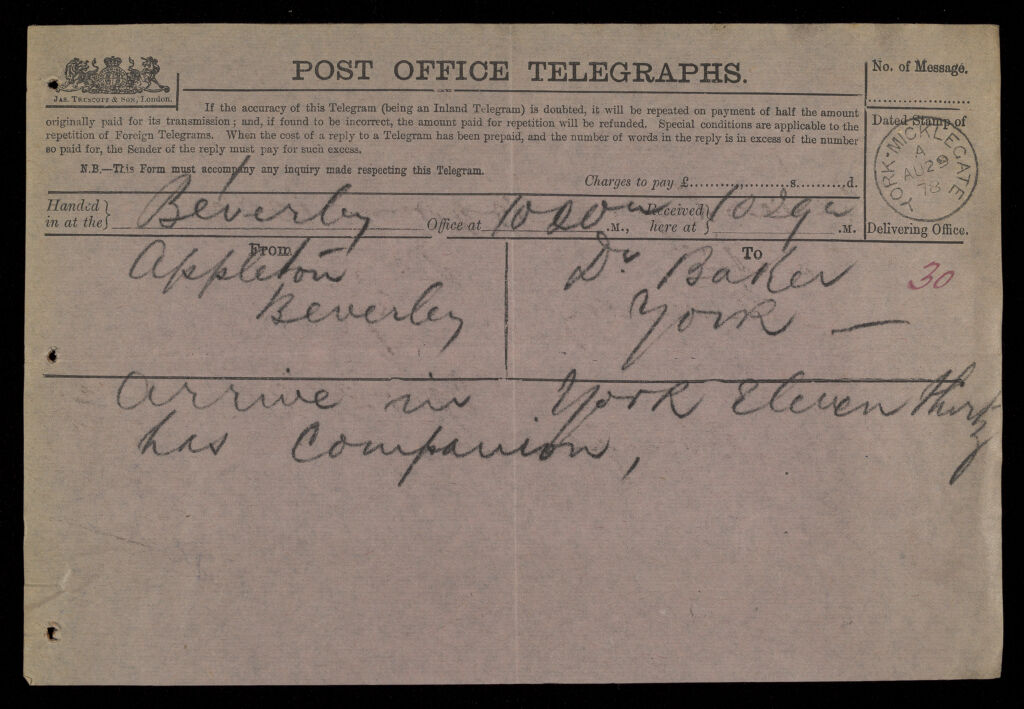 JAS. TRUSCOTT & SON, London.
POST OFFICE TELEGRAPHS.
No. of Message.
If the accuracy of this Telegram (being an Inland Telegram) is doubted, it will be repeated on payment of half the amount
originally paid for its transmission; and, if found to be incorrect, the amount paid for repetition will be refunded. Special conditions are applicable to the
repetition of Foreign Telegrams. When the cost of a reply to a Telegram has been prepaid, and the number of words in the reply is in excess of the number
so paid for, the Sender of the reply must pay for such excess.
N.B.—This Form must accompany any inquiry made respecting this Telegram.
Charges to pay £ s. d.
Dated Stamp of
YORK-MICKLEGATE
A
AU 29
78
Delivering Office.
Handed in at the } Beverley Office at 10 20 .M., Received here at } 10 29 .M.
From
Appleton
Beverley
To
Dr Baker
York —
30
arrive in York Eleven thirty
has Companion,